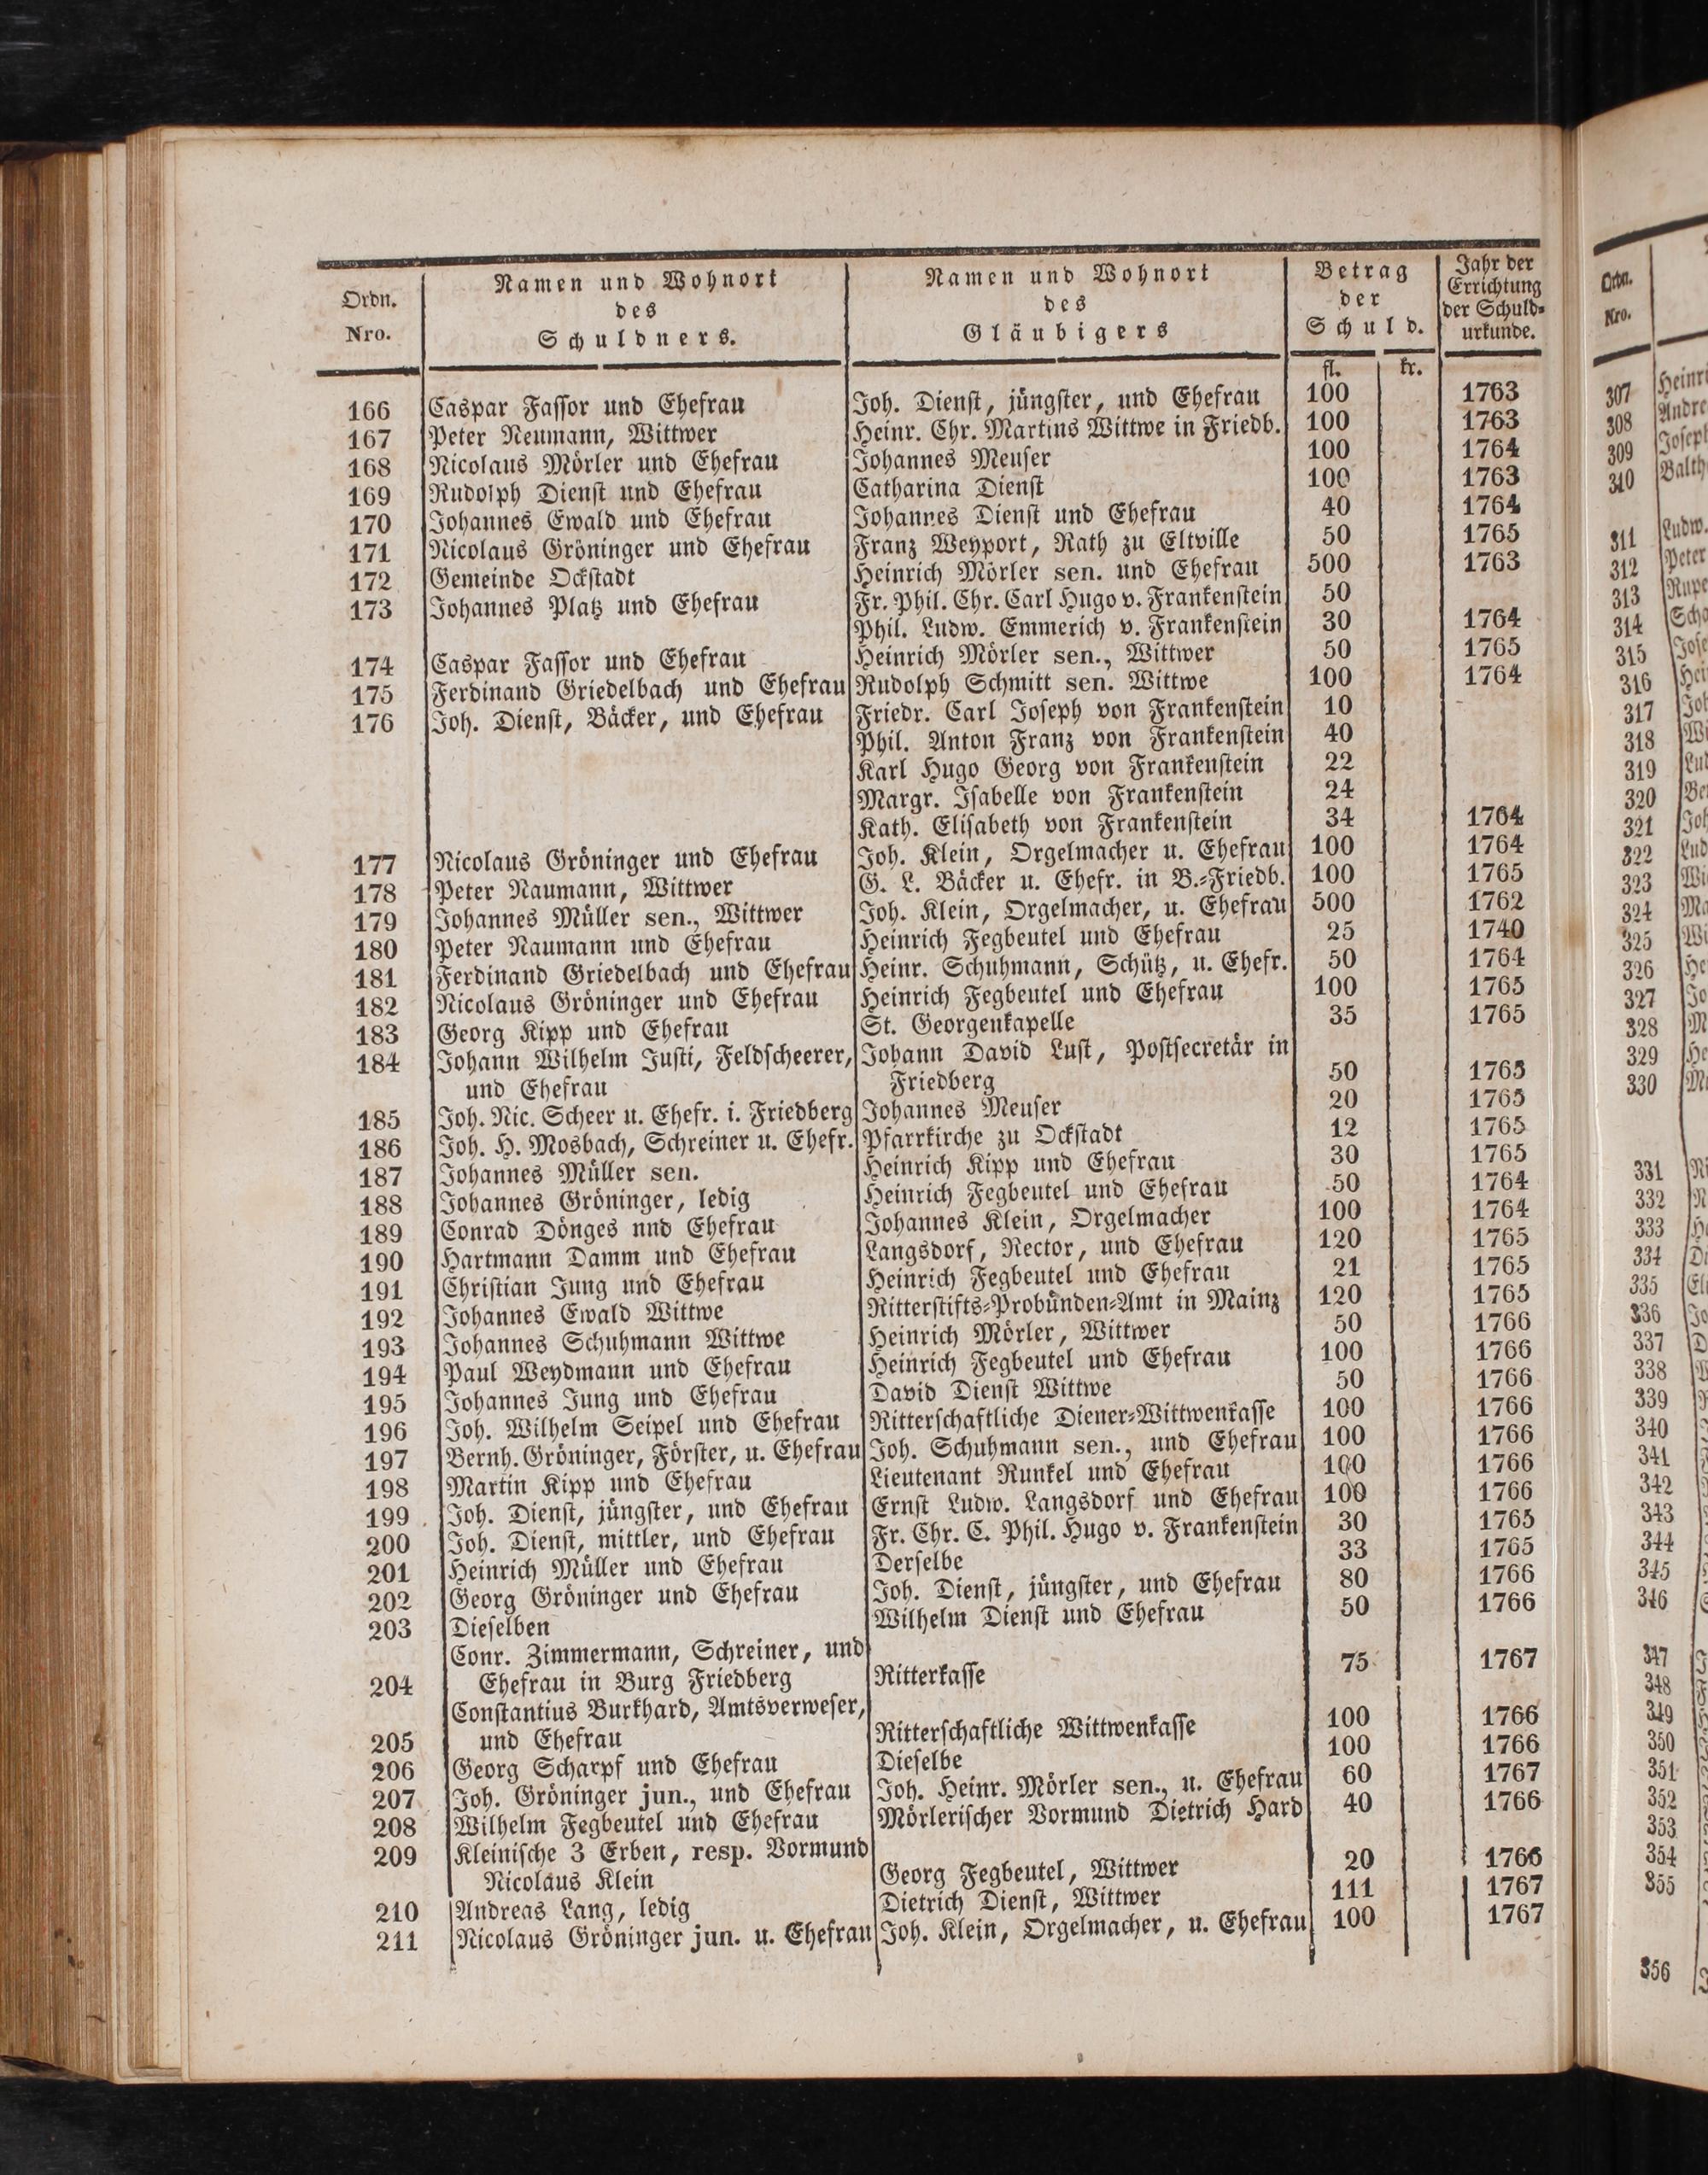 Ordn. Nro. | Namen und Wohnort des Schuldners. | Namen und Wohnort des Gläubigers | Betrag der Schuld. fl. kr. | Jahr der Errichtung der Schuld- urkunde.
166 Caspar Fassor und Ehefrau Joh. Dienst, jüngster, und Ehefrau 100 1763
167 Peter Neumann, Wittwer Heinr. Chr. Martins Wittwe in Friedb. 100 1763
168 Nicolaus Mörler und Ehefrau Johannes Meuser 100 1764
169 Rudolph Dienst und Ehefrau Catharina Dienst 100 1763
170 Johannes Ewald und Ehefrau Johannes Dienst und Ehefrau 40 1764
171 Nicolaus Gröninger und Ehefrau Franz Weyport, Rath zu Eltville 50 1765
172 Gemeinde Ockstadt Heinrich Mörler sen. und Ehefrau 500 1763
173 Johannes Platz und Ehefrau Fr. Phil. Chr. Carl Hugo v. Frankenstein 50
Phil. Ludw. Emmerich v. Frankenstein 30 1764
174 Caspar Fassor und Ehefrau Heinrich Mörler sen., Wittwer 50 1765
175 Ferdinand Griedelbach und Ehefrau Rudolph Schmitt sen. Wittwe 100 1764
176 Joh. Dienst, Bäcker, und Ehefrau Friedr. Carl Joseph von Frankenstein 10
Phil. Anton Franz von Frankenstein 40
Karl Hugo Georg von Frankenstein 22
Margr. Isabelle von Frankenstein 24
Kath. Elisabeth von Frankenstein 34 1764
177 Nicolaus Gröninger und Ehefrau Joh. Klein, Orgelmacher u. Ehefrau 100 1764
178 Peter Naumann, Wittwer G. L. Bäcker u. Ehefr. in B.-Friedb. 100 1765
179 Johannes Müller sen., Wittwer Joh. Klein, Orgelmacher, u. Ehefrau 500 1762
180 Peter Naumann und Ehefrau Heinrich Fegbeutel und Ehefrau 25 1740
181 Ferdinand Griedelbach und Ehefrau Heinr. Schuhmann, Schütz, u. Ehefr. 50 1764
182 Nicolaus Gröninger und Ehefrau Heinrich Fegbeutel und Ehefrau 100 1765
183 Georg Kipp und Ehefrau St. Georgenkapelle 35 1765
184 Johann Wilhelm Justi, Feldscheerer, Johann David Lust, Postsecretär in
und Ehefrau Friedberg 50 1765
185 Joh. Nic. Scheer u. Ehefr. i. Friedberg Johannes Meuser 20 1765
186 Joh. H. Mosbach, Schreiner u. Ehefr. Pfarrkirche zu Ockstadt 12 1765
187 Johannes Müller sen. Heinrich Kipp und Ehefrau 30 1765
188 Johannes Gröninger, ledig Heinrich Fegbeutel und Ehefrau 50 1764
189 Conrad Dönges nnd Ehefrau Johannes Klein, Orgelmacher 100 1764
190 Hartmann Damm und Ehefrau Langsdorf, Rector, und Ehefrau 120 1765
191 Christian Jung und Ehefrau Heinrich Fegbeutel und Ehefrau 21 1765
192 Johannes Ewald Wittwe Ritterstifts-Probünden-Amt in Mainz 120 1765
193 Johannes Schuhmann Wittwe Heinrich Mörler, Wittwer 50 1766
194 Paul Weydmann und Ehefrau Heinrich Fegbeutel und Ehefrau 100 1766
195 Johannes Jung und Ehefrau David Dienst Wittwe 50 1766
196 Joh. Wilhelm Seipel und Ehefrau Ritterschaftliche Diener-Wittwenkasse 100 1766
197 Bernh. Gröninger, Förster, u. Ehefrau Joh. Schuhmann sen., und Ehefrau 100 1766
198 Martin Kipp und Ehefrau Lieutenant Runkel und Ehefrau 100 1766
199 Joh. Dienst, jüngster, und Ehefrau Ernst Ludw. Langsdorf und Ehefrau 100 1766
200 Joh. Dienst, mittler, und Ehefrau Fr. Chr. C. Phil. Hugo v. Frankenstein 30 1765
201 Heinrich Müller und Ehefrau Derselbe 33 1765
202 Georg Gröninger und Ehefrau Joh. Dienst, jüngster, und Ehefrau 80 1766
203 Dieselben Wilhelm Dienst und Ehefrau 50 1766
Conr. Zimmermann, Schreiner, und
204 Ehefrau in Burg Friedberg Ritterkasse 75 1767
Constantius Burkhard, Amtsverweser,
205 und Ehefrau Ritterschaftliche Wittwenkasse 100 1766
206 Georg Scharpf und Ehefrau Dieselbe 100 1766
207 Joh. Gröninger jun., und Ehefrau Joh. Heinr. Mörler sen., u. Ehefrau 60 1767
208 Wilhelm Fegbeutel und Ehefrau Mörlerischer Vormund Dietrich Hard 40 1766
209 Kleinische 3 Erben, resp. Vormund
Nicolaus Klein Georg Fegbeutel, Wittwer 20 1766
210 Andreas Lang, ledig Dietrich Dienst, Wittwer 111 1767
211 Nicolaus Gröninger jun. u. Ehefrau Joh. Klein, Orgelmacher, u. Ehefrau 100 1767
Ordn.
Nro.
307
308
309
310
311
312
313
314
315
316
317
318
319
320
321
322
323
324
325
326
327
328
329
330
331
332
333
334
335
336
337
338
339
340
341
342
343
344
345
346
347
348
349
350
351
352
353
354
355
356